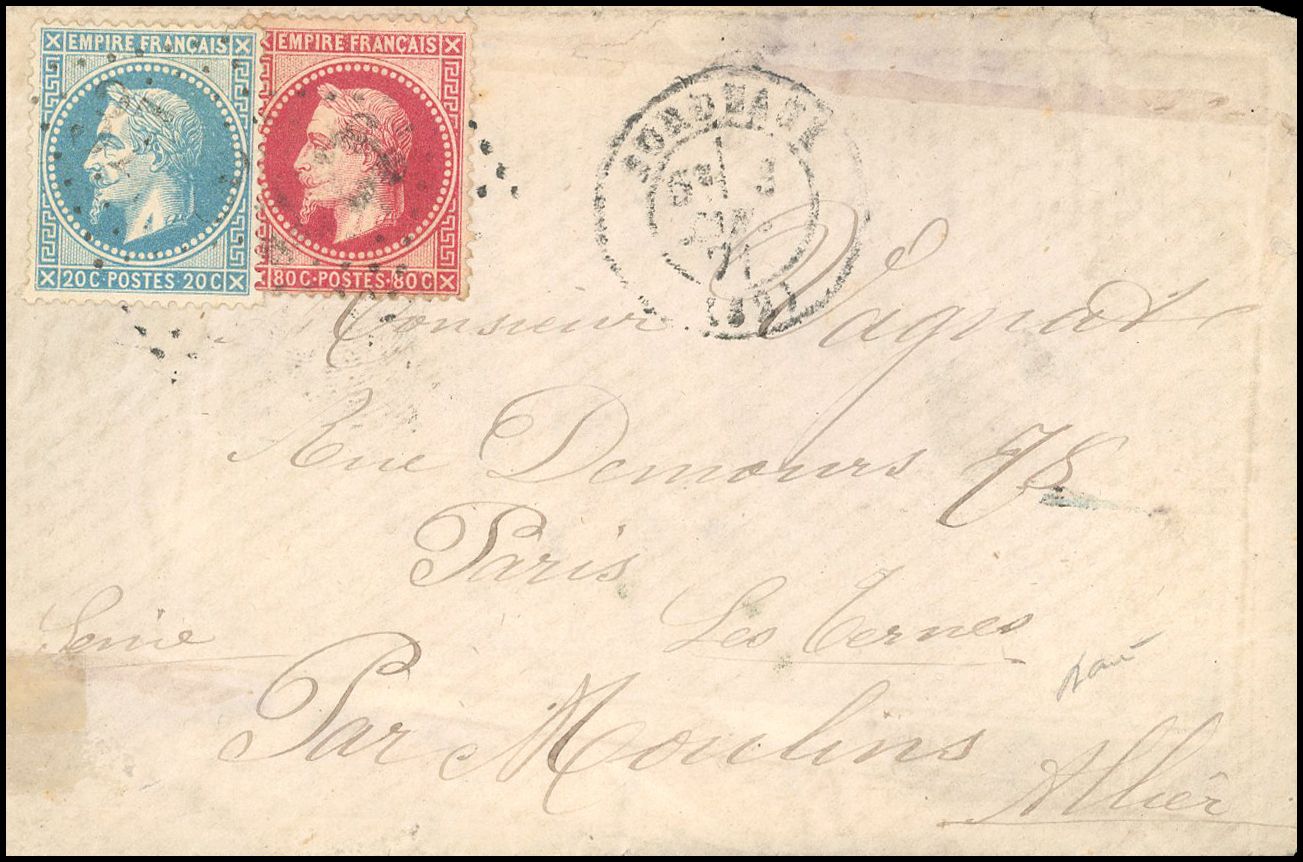 EMPIRE FRANÇAIS
20C·POSTES·20C
EMPIRE FRANÇAIS
80C·POSTES·80C
BORDEAUX
71
(32)
Monsieur Vagnat
Rue Demours 78
Paris
Les Ternes
Seine
Par Moulins
Allier